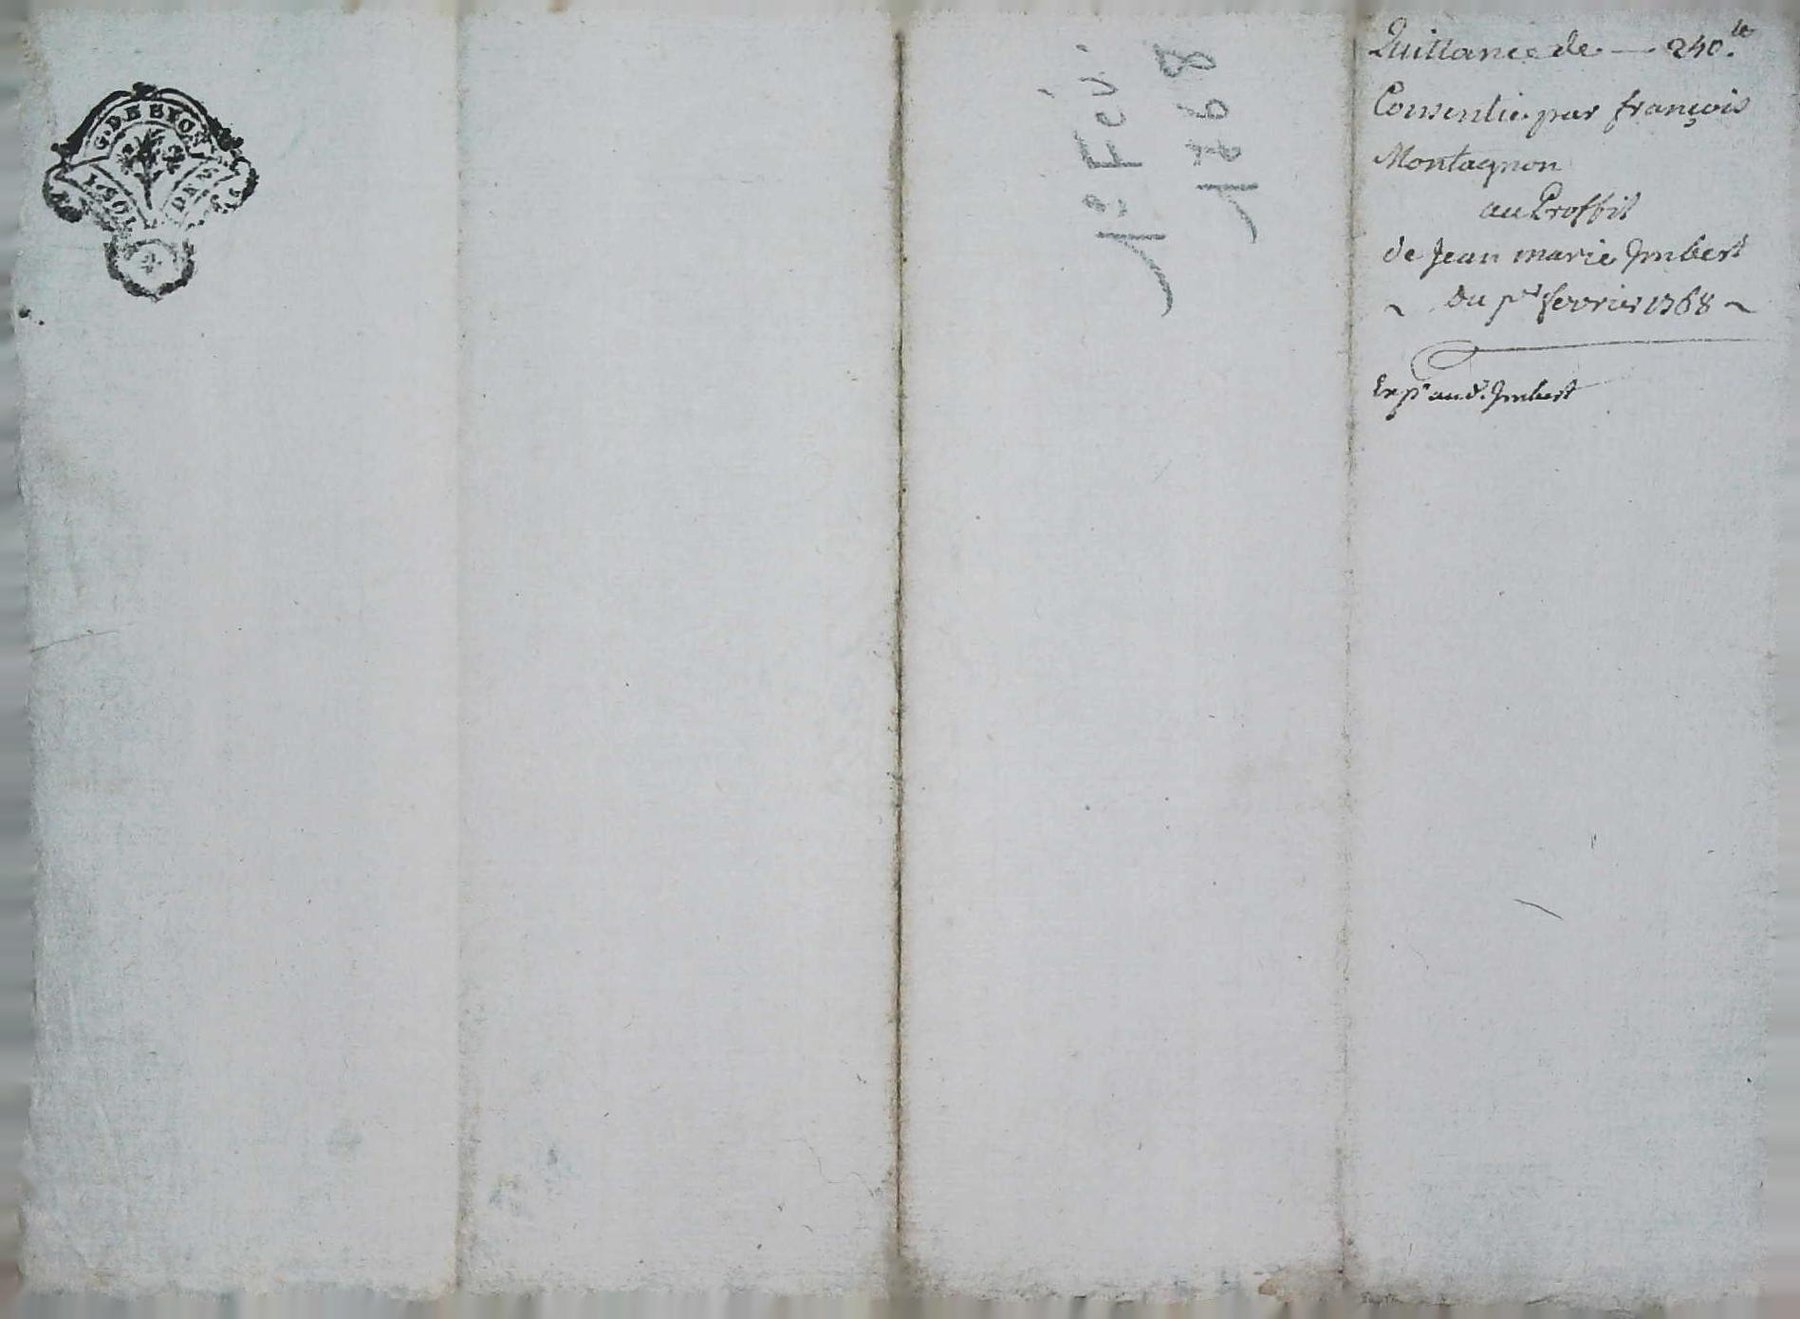 G. DE LYON
1.SOL DEN
1º Fév.
1768
Quittance de — 240.#
Consentie par françois
Montagnon
au Proffit
de Jean marie Imbert
~ Du pr fevrier 1768 ~
Expn aud. Imbert